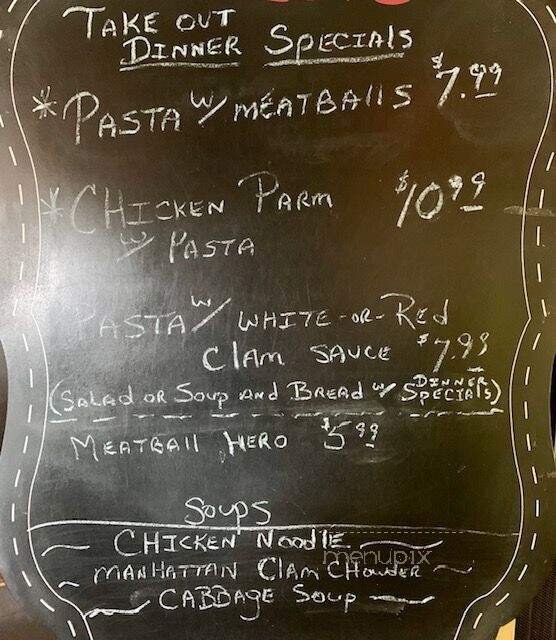 TAKE OUT
DINNER SPECIALS
* PASTA W/ MEATBALLS $7.99
* CHICKEN PARM $10.99
W/ PASTA
PASTA W/ WHITE-OR-Red
Clam SAUCE $7.99
(Salad OR Soup AND BREAD W/ DINNER SPECIALS)
MEATBALL HERO $5.99
Soups
CHICKEN Noodle
MANHATTAN Clam CHowder
CABBAGE Soup
menupix